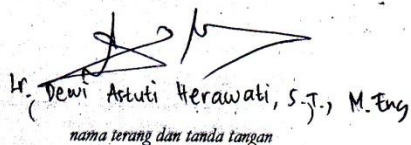 Ir. Dewi Astuti Herawati, S.T., M.Eng
( )
nama terang dan tanda tangan